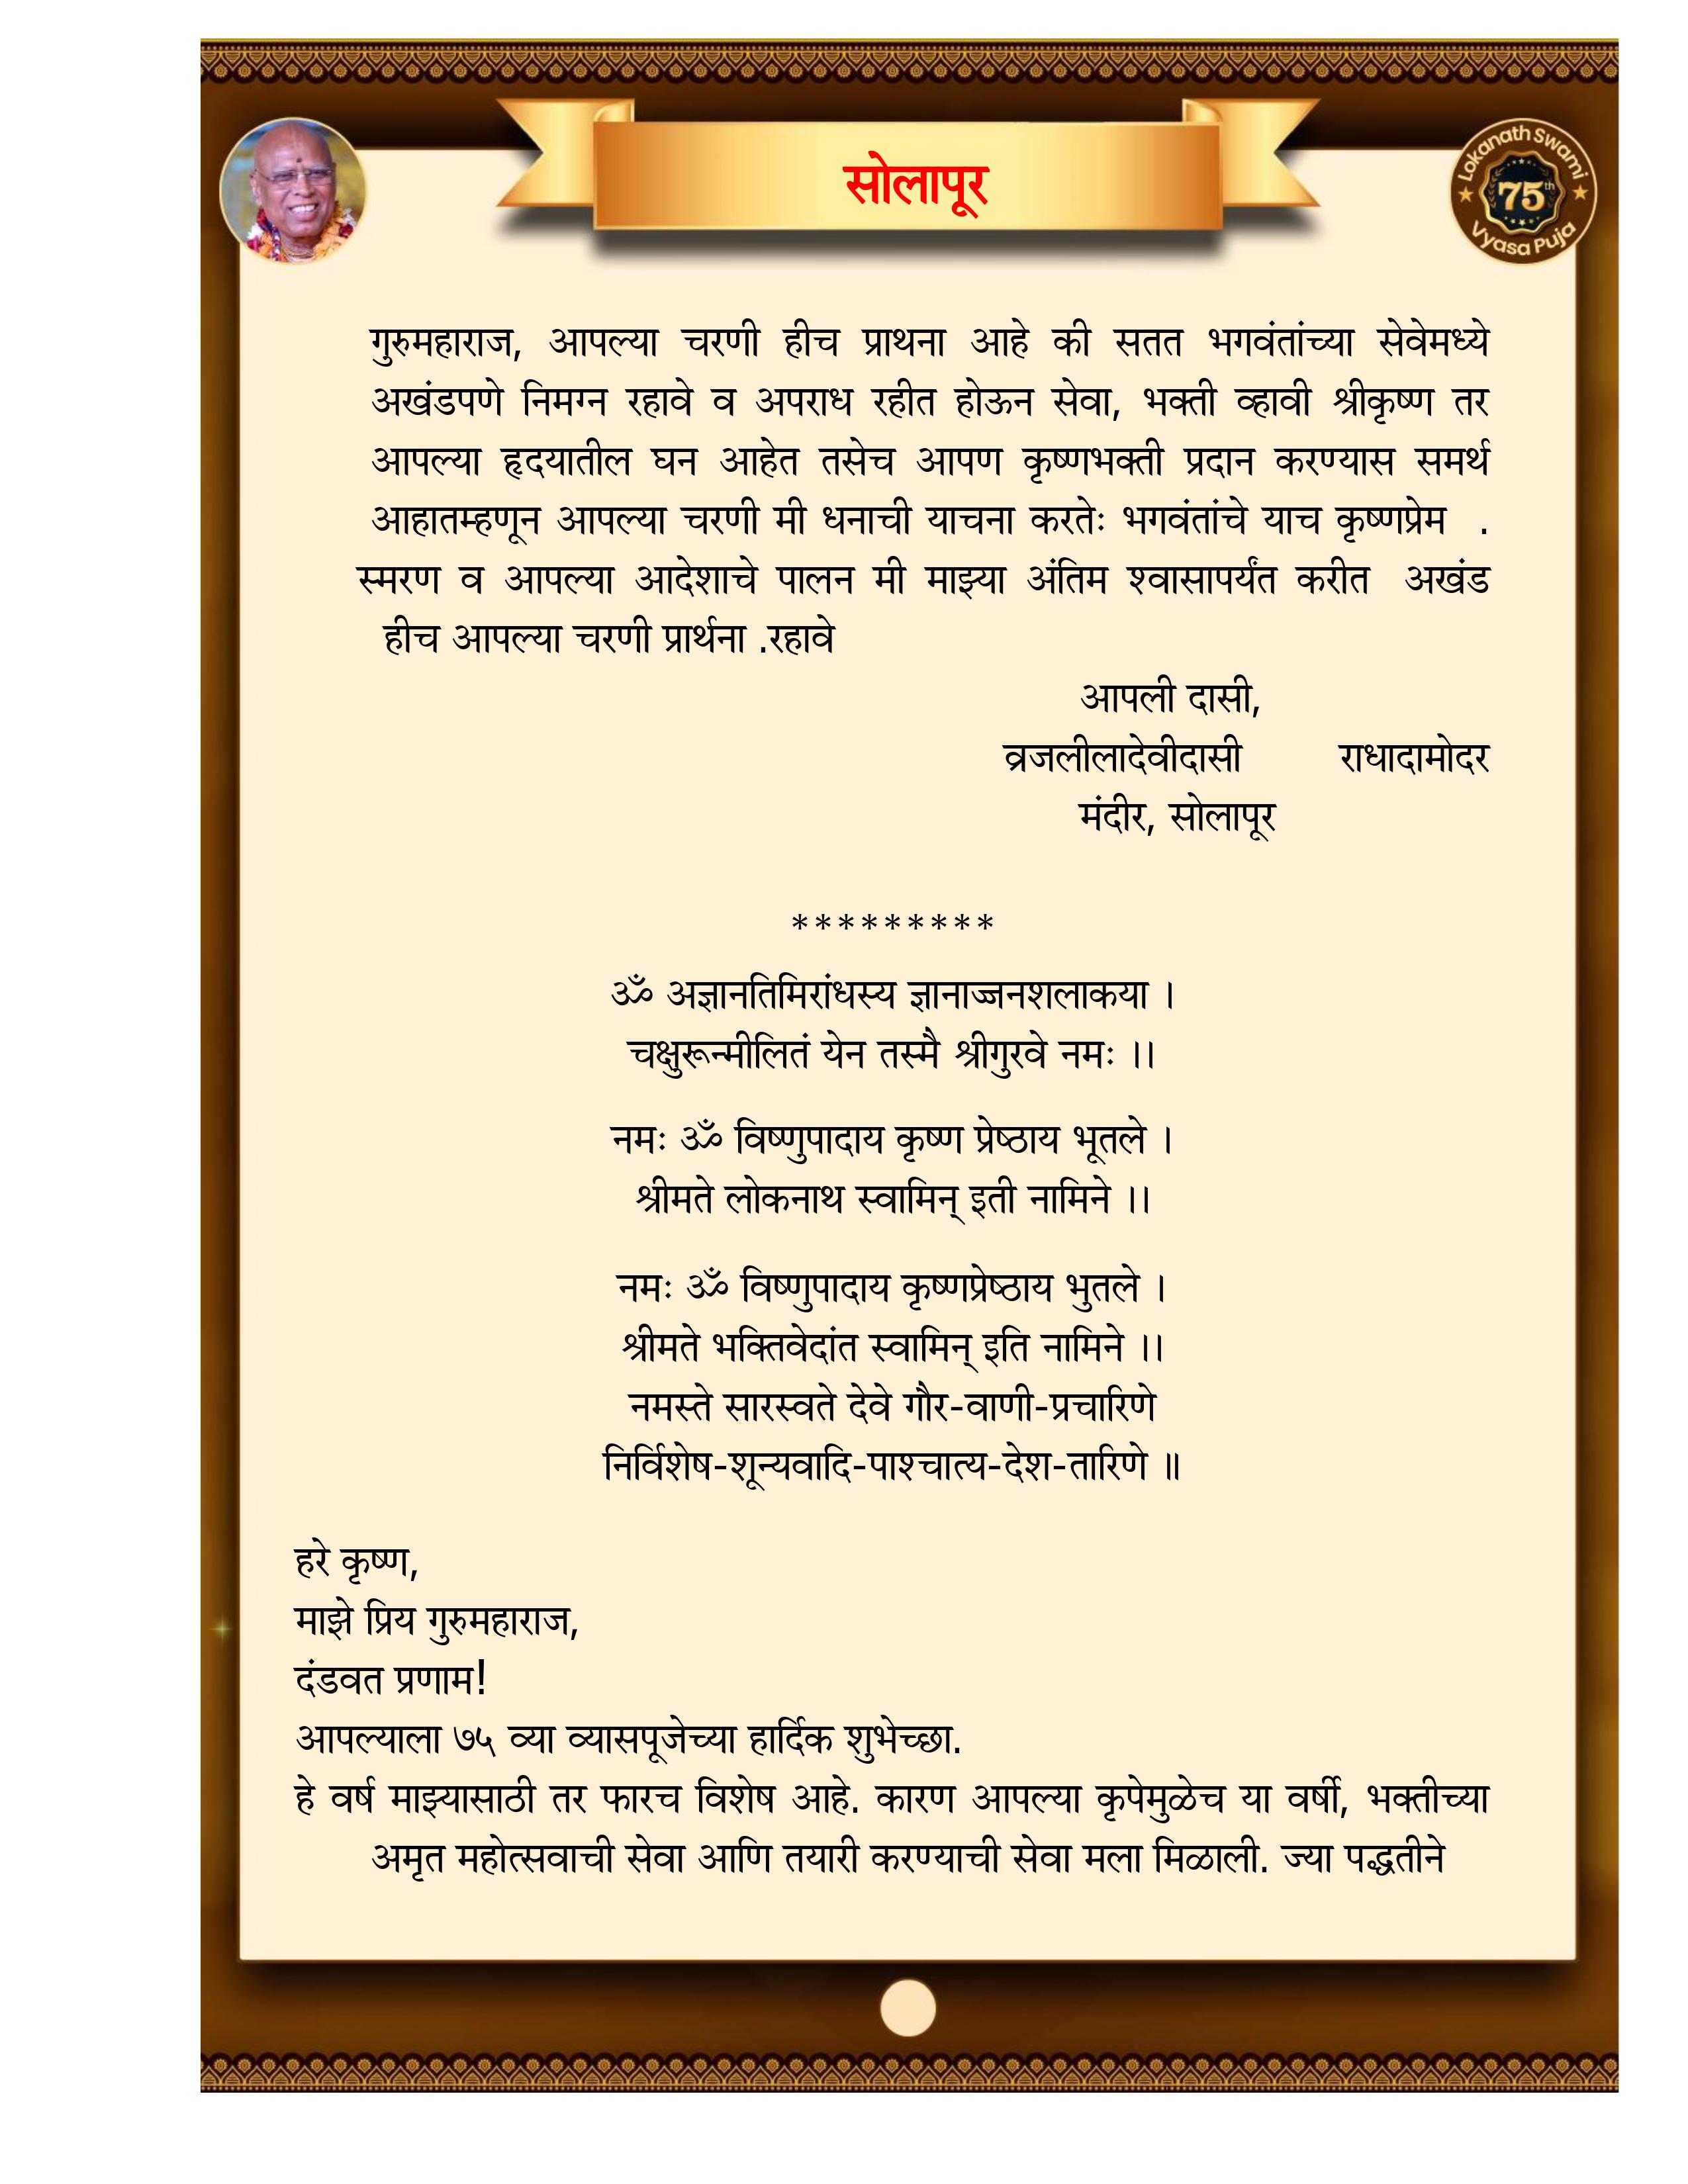 सोलापूर
Lokanath Swami
75th
Vyasa Puja
गुरुमहाराज, आपल्या चरणी हीच प्राथना आहे की सतत भगवंतांच्या सेवेमध्ये
अखंडपणे निमग्न रहावे व अपराध रहीत होऊन सेवा, भक्ती व्हावी श्रीकृष्ण तर
आपल्या हृदयातील घन आहेत तसेच आपण कृष्णभक्ती प्रदान करण्यास समर्थ
आहातम्हणून आपल्या चरणी मी धनाची याचना करतेः भगवंतांचे याच कृष्णप्रेम .
स्मरण व आपल्या आदेशाचे पालन मी माझ्या अंतिम श्वासापर्यंत करीत अखंड
हीच आपल्या चरणी प्रार्थना .रहावे
आपली दासी,
व्रजलीलादेवीदासी राधादामोदर
मंदीर, सोलापूर
*********
ॐ अज्ञानतिमिरांधस्य ज्ञानाज्जनशलाकया ।
चक्षुरून्मीलितं येन तस्मै श्रीगुरवे नमः ।।
नमः ॐ विष्णुपादाय कृष्ण प्रेष्ठाय भूतले ।
श्रीमते लोकनाथ स्वामिन् इती नामिने ।।
नमः ॐ विष्णुपादाय कृष्णप्रेष्ठाय भुतले ।
श्रीमते भक्तिवेदांत स्वामिन् इति नामिने ।।
नमस्ते सारस्वते देवे गौर-वाणी-प्रचारिणे
निर्विशेष-शून्यवादि-पाश्चात्य-देश-तारिणे ॥
हरे कृष्ण,
माझे प्रिय गुरुमहाराज,
दंडवत प्रणाम!
आपल्याला ७५ व्या व्यासपूजेच्या हार्दिक शुभेच्छा.
हे वर्ष माझ्यासाठी तर फारच विशेष आहे. कारण आपल्या कृपेमुळेच या वर्षी, भक्तीच्या
अमृत महोत्सवाची सेवा आणि तयारी करण्याची सेवा मला मिळाली. ज्या पद्धतीने